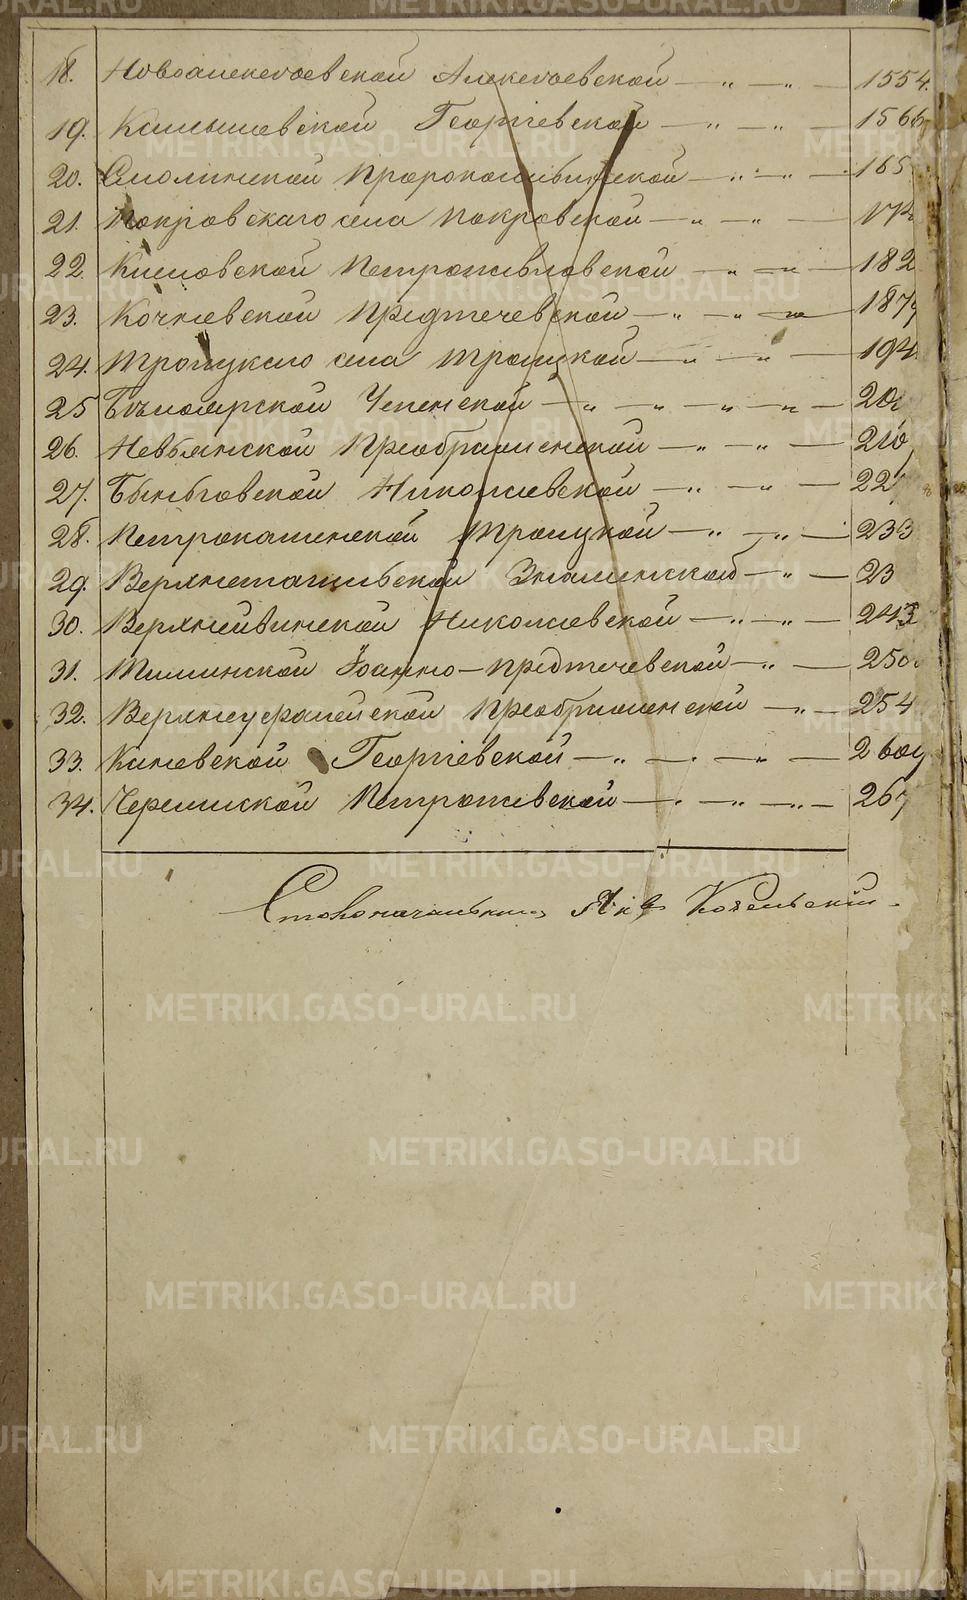 18. Новоалексеевской Алексеевской — „ — „ — 1554.
19. Камышевской Георгіевской — „ — „ — 1566
20. Смолинской Пророкоильинской — „ — „ — 165
21. Покровскаго села Покровской — „ — „ —
22. Кисловской Петропавловской — „ — „ — 182
23. Кочневской Предтечевской — „ — „ — 187
24. Троицкаго села Троицкой — „ — „ — 194
25 Бѣлоярской Успенской — „ — „ — „ — „ — 20
26. Невьянской Преображенской — „ — „ — 210
27. Быньговской Николаевской — „ — „ — 22
28. Петрокаменской Троицкой — „ — „ — 233
29. Верхнетагильской Знаменской — „ — 23
30. Верхнейвинской Николаевской — „ — „ — 243
31. Тиминской Іоанно-Предтечевской — „ — 250
32. Верхнеуфалейской Преображенской — „ — 254
33. Каневской Георгіевской — „ — „ — „ — 260
34. Черемшской Петропавской — „ — „ — „ — 267
Столоначальникъ Яковъ
METRIKI.GASO-URAL.RU